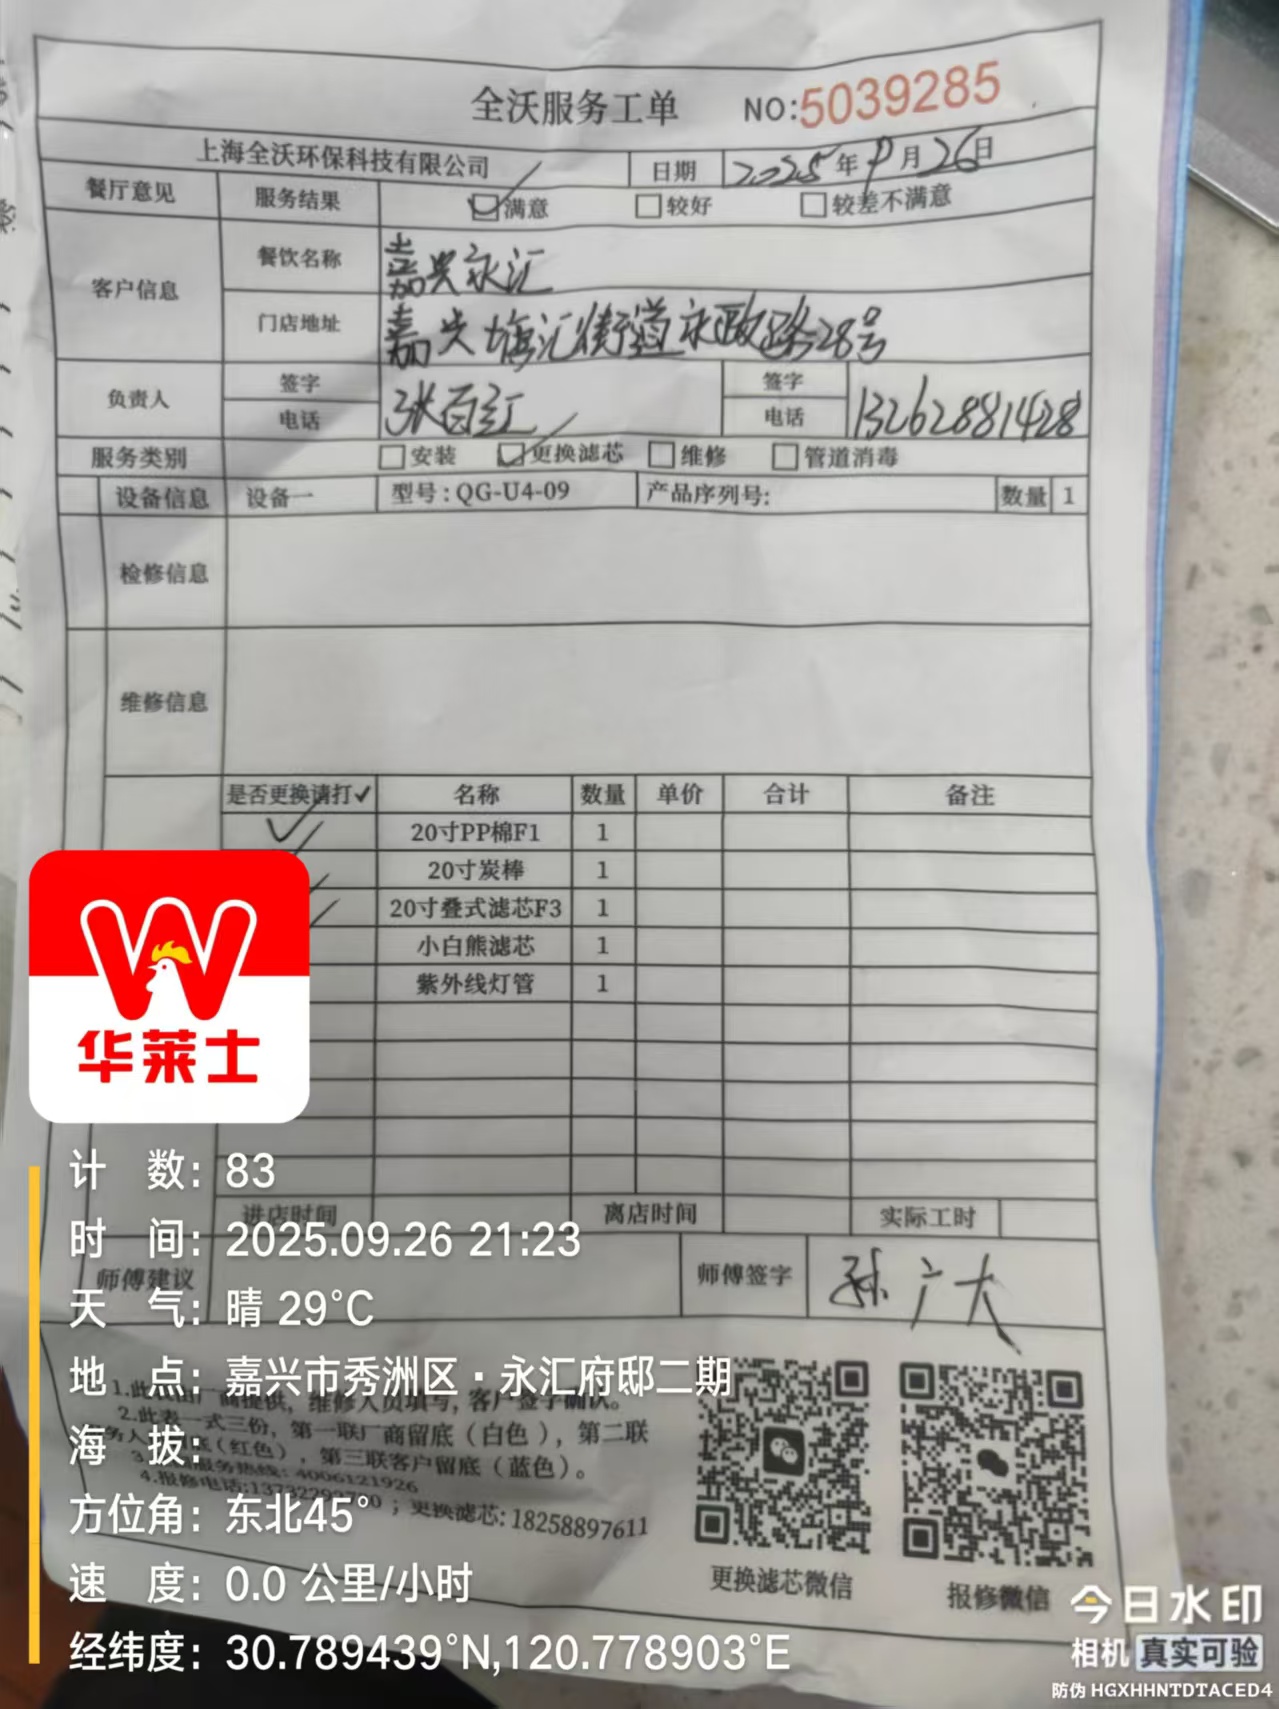 全沃服务工单 NO:5039285
上海全沃环保科技有限公司 日期 2025年9月26日
餐厅意见 服务结果 满意 较好 较差不满意
客户信息 餐饮名称 嘉兴永汇
门店地址 嘉兴塘汇街道永政路28号
负责人 签字 张百红 签字
电话 电话 13262881428
服务类别 安装 更换滤芯 维修 管道消毒
设备信息 设备一 型号:QG-U4-09 产品序列号: 数量 1
检修信息
维修信息
是否更换请打✓ 名称 数量 单价 合计 备注
✓ 20寸PP棉F1 1
20寸炭棒 1
20寸叠式滤芯F3 1
小白熊滤芯 1
紫外线灯管 1
华莱士
进店时间 离店时间 实际工时
师傅建议 师傅签字 孙广大
计 数: 83
时 间: 2025.09.26 21:23
天 气: 晴 29°C
地 点: 嘉兴市秀洲区·永汇府邸二期
海 拔:
方位角: 东北45°
速 度: 0.0 公里/小时
经纬度: 30.789439°N,120.778903°E
商提供，维修人员填写，客户签字确认。
2.此表一式三份，第一联厂商留底（白色），第二联
（红色），第三联客户留底（蓝色）。
服务热线: 4006121926
4.报修电话: ；更换滤芯: 18258897611
更换滤芯微信 报修微信
今日水印
相机 真实可验
防伪 HGXHHNTDTACED4